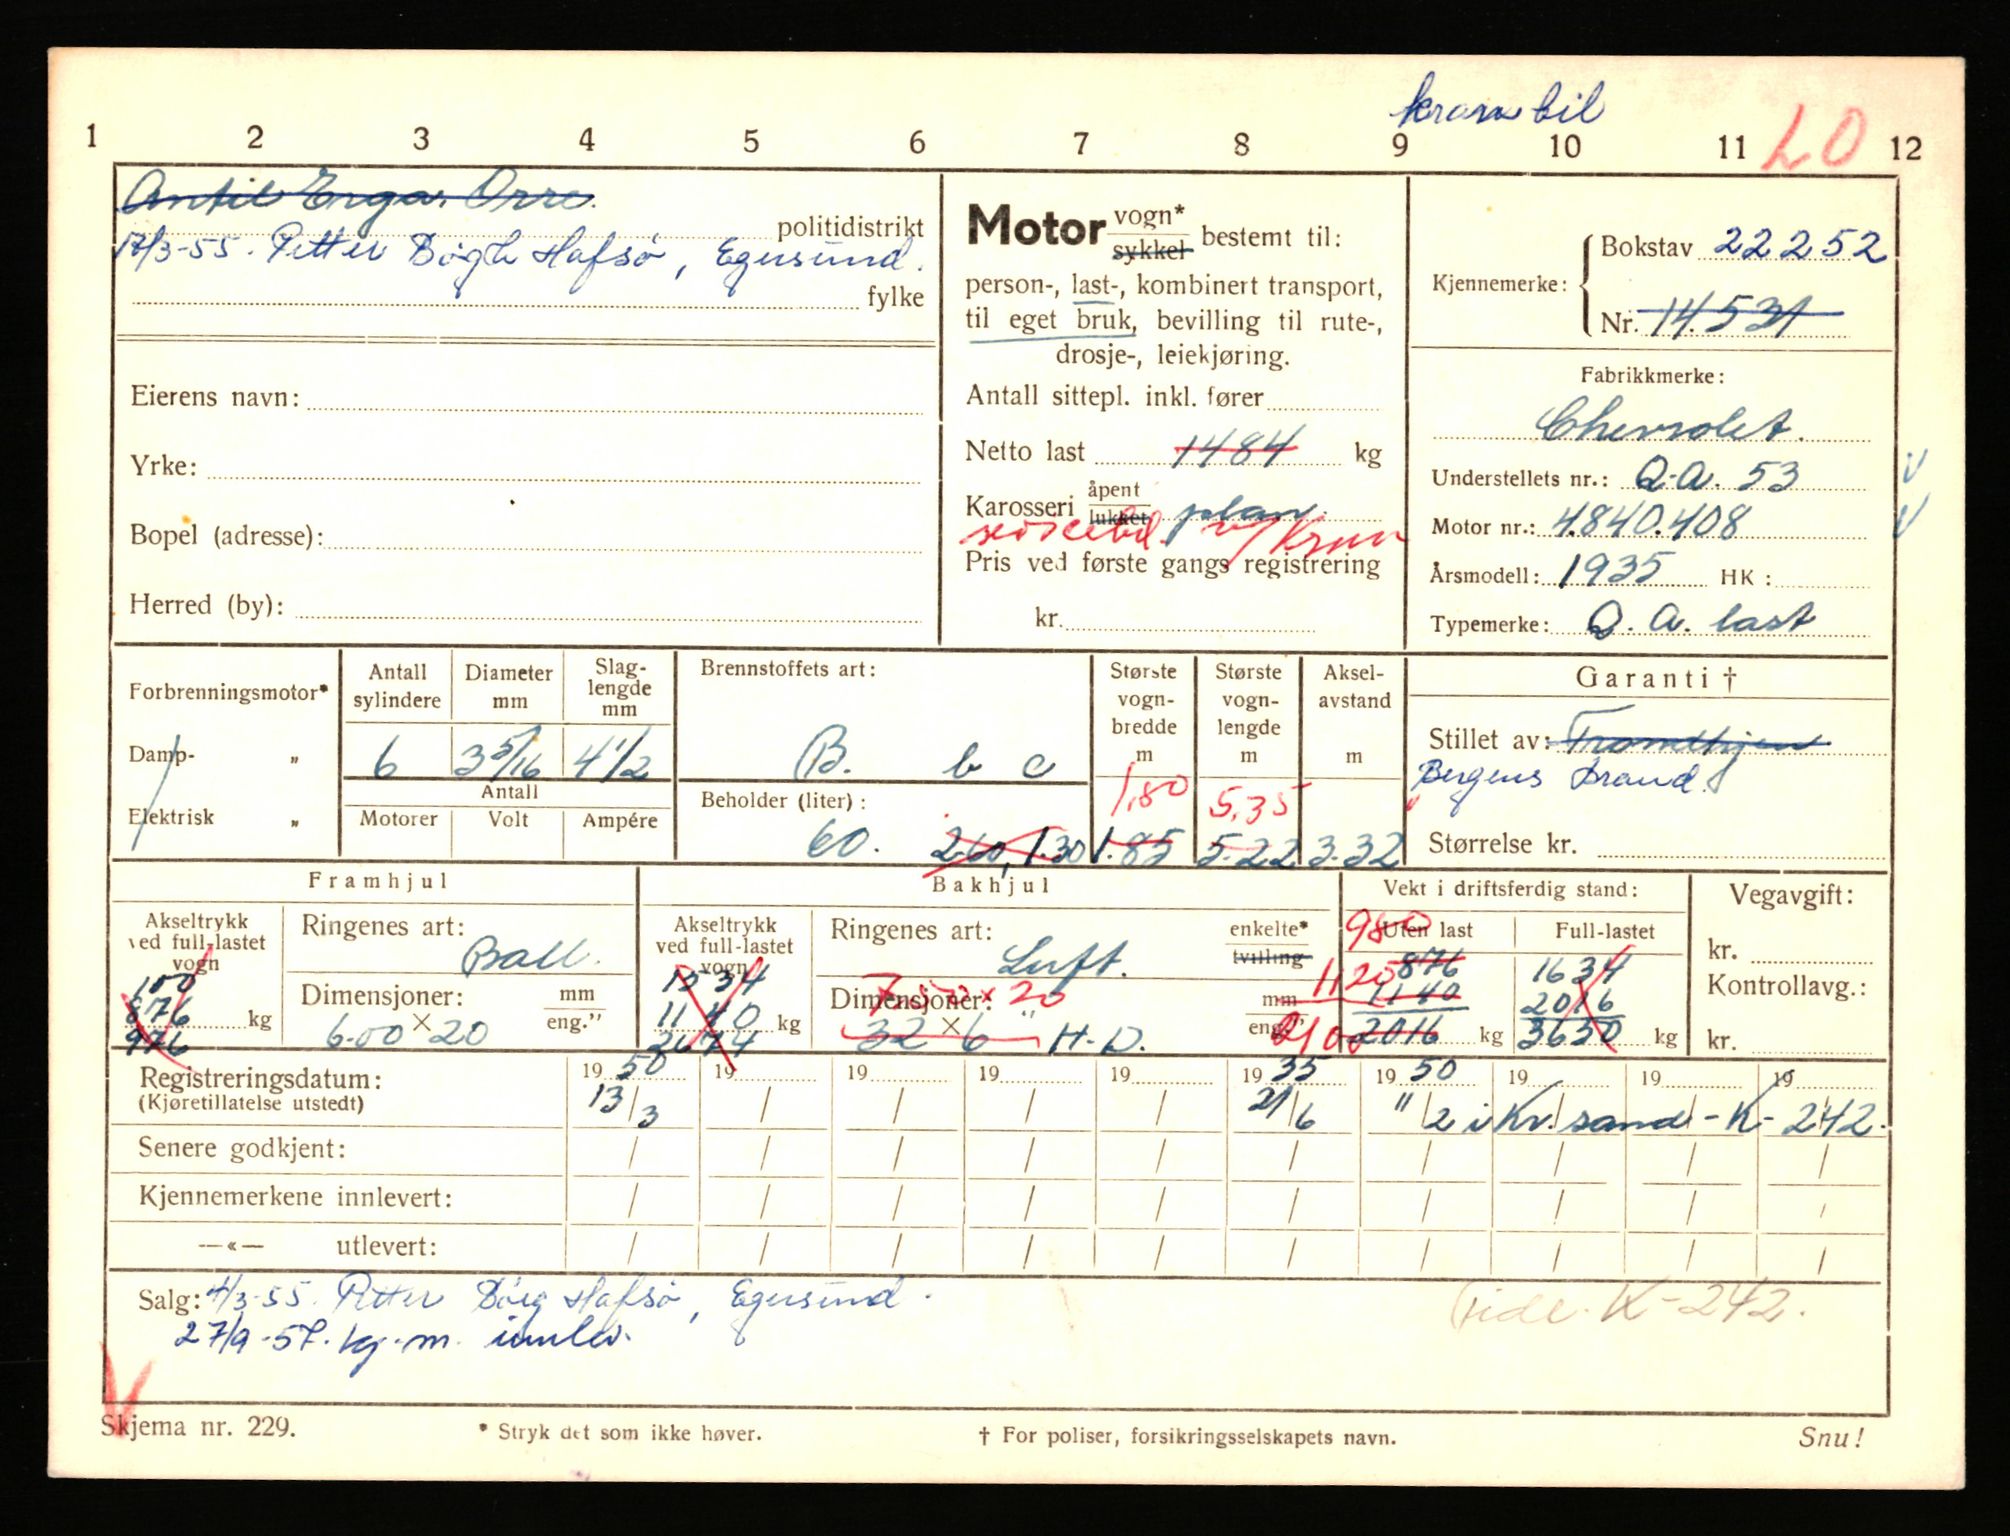 kranbil
1 2 3 4 5 6 7 8 9 10 11 LO 12
Antil Erga, Orre.
politidistrikt
17/3-55. Petter Bøgh Hafsø, Egersund.
fylke
Eierens navn:
Yrke:
Bopel (adresse):
Herred (by):
Motor vogn* sykkel bestemt til:
person-, last-, kombinert transport,
til eget bruk, bevilling til rute-,
drosje-, leiekjøring.
Antall sittepl. inkl. fører
Netto last 1484 kg
Karosseri åpent lukket plan.
m/ kran
Pris ved første gangs registrering
kr.
Kjennemerke: Bokstav 22252
Nr. 14.531
Fabrikkmerke:
Chevrolet.
Understellets nr.: Q.A. 53
Motor nr.: 4.840.408
Årsmodell: 1935 HK:
Typemerke: Q.A. last
Forbrenningsmotor*
Damp- „
Elektrisk „
Antall sylindere
6
Diameter mm
3 5/16
Slag-lengde mm
4 1/2
Antall
Motorer Volt Ampére
Brennstoffets art:
B. b c
Beholder (liter):
60. 260, 1.30
Største vogn-bredde m
1,80
1.85
Største vogn-lengde m
5,35
5.22
Aksel-avstand m
3.32
Garanti †
Stillet av: Trondhjem
Bergens Brand.
Størrelse kr.
Framhjul
Akseltrykk ved full-lastet vogn
100
876
976 kg
Ringenes art:
Ball.
Dimensjoner: mm eng."
6.00 × 20
Bakhjul
Akseltrykk ved full-lastet vogn
1534
1140
2674 kg
Ringenes art: enkelte* tvilling
Luft.
Dimensjoner: mm eng."
7.50 × 20
32 × 6 " H.D.
Vekt i driftsferdig stand:
Uten last
980
876
1120
1140
2100
2016 kg
Full-lastet
1634
2016
3650 kg
Vegavgift:
kr.
Kontrollavg.:
kr.
Registreringsdatum: 19 50 19 19 19 19 19 35 19 50 19 19 19
(Kjøretillatelse utstedt) 13/3 / / / / 21/6 "/2 i Kr.sand - K - 242.
Senere godkjent:
Kjennemerkene innlevert:
—«— utlevert:
Salg: 4/3-55. Petter Bøig Hafsø, Egersund.
27/9-57. kj.m. innlev.
vide K-242.
Skjema nr. 229.
* Stryk det som ikke høver.
† For poliser, forsikringsselskapets navn.
Snu!